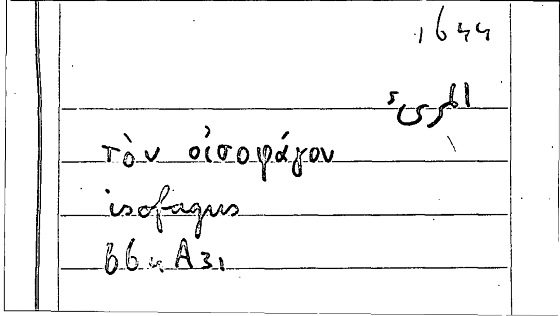 1644
المريء
τὸν οἰσοφάγον
isofagus
664 A31